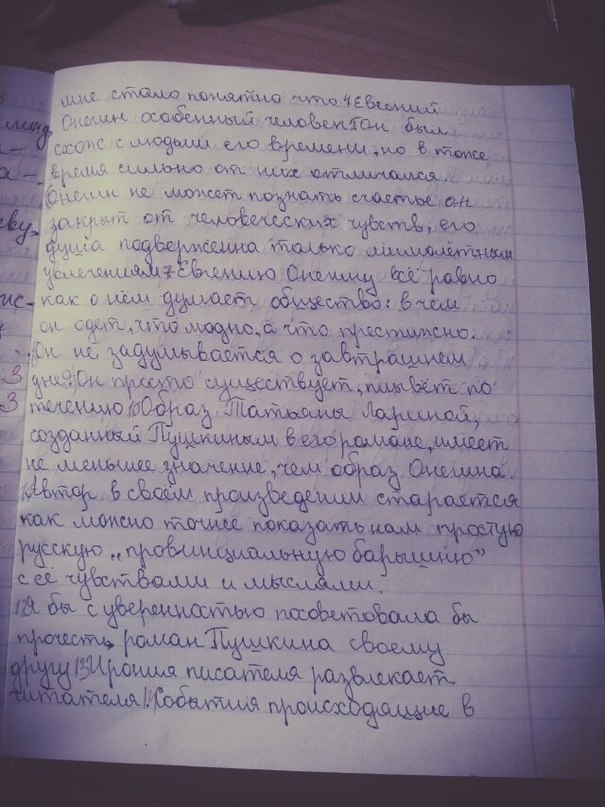 мне стало понятно что 4Евгений
Онегин особенный человек! Он был
схож с людьми его времени, но в тоже
время сильно от них отличался
Онегин не может познать счастье он
закрыт от человеческих чувств, его
душа подверженна только мимолётным
увлечениям 7Евгению Онегину всё равно
как о нём думает общество: в чём
он одет, что модно, а что престижно.
Он не задумывается о завтрашнем
дне 9Он просто существует, плывёт по
течению 10Образ Татьяны Лариной,
созданный Пушкиным в его романе, имеет
не меньшее значение, чем образ Онегина.
Автор в своём произведении старается
как можно точнее показать нам простую
русскую „провинциальную барышню"
с её чувствами и мыслями.
12Я бы с уверенностью посоветовала бы
прочесть роман Пушкина своему
другу 13Ирония писателя развлекает
читателя 14События происходящие в